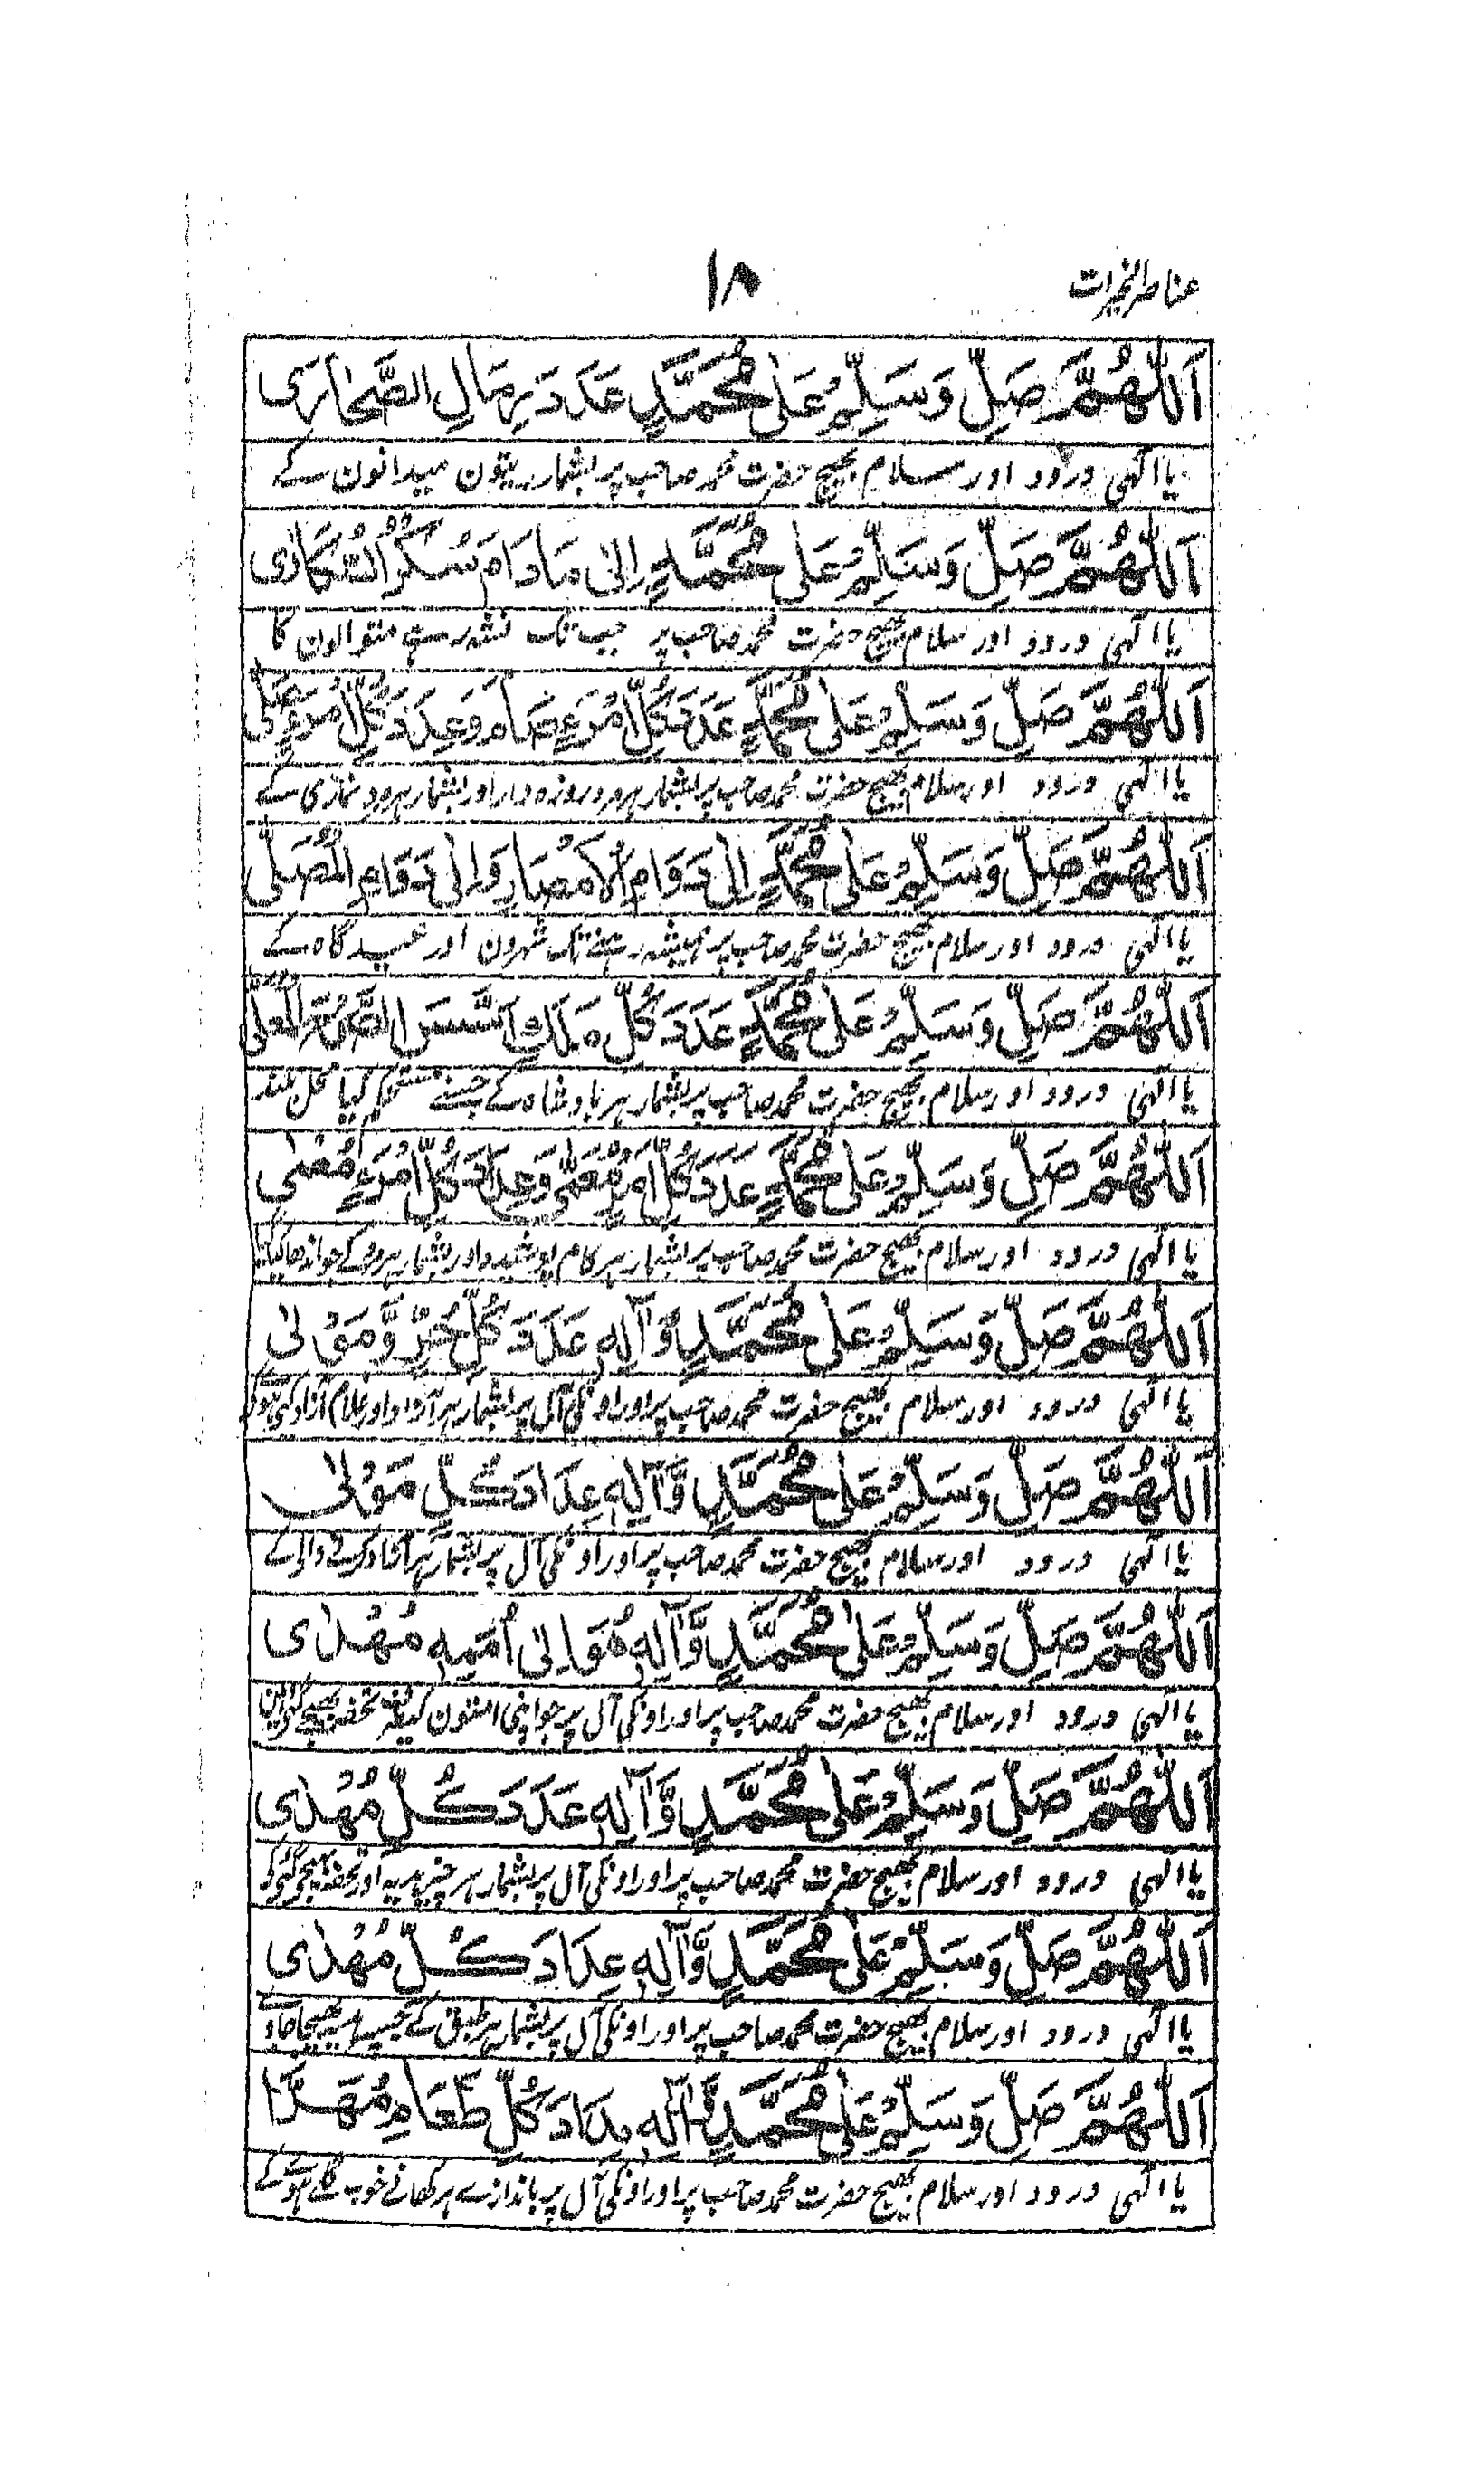 عناصر الخیرات ۱۸
اَللّٰهُمَّ صَلِّ وَسَلِّمْ عَلٰی مُحَمَّدٍ عَدَدَ رِمَالِ الصَّحَارٰی
یا الٰہی درود اور سلام بھیج حضرت محمد صاحب پر بشمار ریتون میدانون کے
اَللّٰهُمَّ صَلِّ وَسَلِّمْ عَلٰی مُحَمَّدٍ اِلٰی مَا دَامَ سُكْرُ السُّكَارٰی
یا الٰہی درود اور سلام بھیج حضرت محمد صاحب پر جب تک نشہ رہے متوالون کا
اَللّٰهُمَّ صَلِّ وَسَلِّمْ عَلٰی مُحَمَّدٍ عَدَدَ كُلِّ امْرَءٍ صَامَ وَعِدَادَ كُلِّ امْرَءٍ صَلّٰی
یا الٰہی درود اور سلام بھیج حضرت محمد صاحب پر بشمار ہر مرد روزہ دار اور بشمار ہر مرد نمازی کے
اَللّٰهُمَّ صَلِّ وَسَلِّمْ عَلٰی مُحَمَّدٍ اِلٰی دَوَامِ الْاَمْصَارِ وَاِلٰی دَوَامِ الْمُصَلّٰی
یا الٰہی درود اور سلام بھیج حضرت محمد صاحب پر ہمیشہ رہنے تک شہرون اور عیدگاہ کے
اَللّٰهُمَّ صَلِّ وَسَلِّمْ عَلٰی مُحَمَّدٍ عَدَدَ كُلِّ مَلِكٍ اَسَّسَ الصَّرْحَ الْمُعَلّٰی
یا الٰہی درود اور سلام بھیج حضرت محمد صاحب پر بشمار ہر بادشاہ کے جسنے مستحکم کیا محل بلند
اَللّٰهُمَّ صَلِّ وَسَلِّمْ عَلٰی مُحَمَّدٍ عَدَدَ كُلِّ اَمْرٍ مُعَمًّی وَعِدَادَ كُلِّ امْرَءٍ مُعْمٰی
یا الٰہی درود اور سلام بھیج حضرت محمد صاحب پر بشمار ہر کام پوشیدہ اور بشمار ہر مرد کے جو اندھا کیا گیا
اَللّٰهُمَّ صَلِّ وَسَلِّمْ عَلٰی مُحَمَّدٍ وَّاٰلِهٖ عَدَدَ كُلِّ حُرٍّ وَّمَوْلٰی
یا الٰہی درود اور سلام بھیج حضرت محمد صاحب پر اور اونکی آل پر بشمار ہر آزاد اور غلام آزاد کئی ہوئے
اَللّٰهُمَّ صَلِّ وَسَلِّمْ عَلٰی مُحَمَّدٍ وَّاٰلِهٖ عِدَادَ كُلِّ مَوْلٰی
یا الٰہی درود اور سلام بھیج حضرت محمد صاحب پر اور اونکی آل پر بشمار ہر آزاد کرنے والی کے
اَللّٰهُمَّ صَلِّ وَسَلِّمْ عَلٰی مُحَمَّدٍ وَّاٰلِهٖ مُوَالِیْ اُمَمِهٖ مُهْدٰی
یا الٰہی درود اور سلام بھیج حضرت محمد صاحب پر اور اونکی آل پر جو اپنی امتون تحفہ بھیجے گئی
اَللّٰهُمَّ صَلِّ وَسَلِّمْ عَلٰی مُحَمَّدٍ وَّاٰلِهٖ عَدَدَ كُلِّ مُهْدٰی
یا الٰہی درود اور سلام بھیج حضرت محمد صاحب پر اور اونکی آل پر بشمار ہر چیز ہدیہ اور تحفہ بھیجی گئی کی
اَللّٰهُمَّ صَلِّ وَسَلِّمْ عَلٰی مُحَمَّدٍ وَّاٰلِهٖ عِدَادَ كُلِّ مُهْدٰی
یا الٰہی درود اور سلام بھیج حضرت محمد صاحب پر اور اونکی آل پر بشمار ہر طبق کے جسپر ہدیہ بھیجا جاوے
اَللّٰهُمَّ صَلِّ وَسَلِّمْ عَلٰی مُحَمَّدٍ وَّاٰلِهٖ مِدَادَ كُلِّ طَعَامٍ مُهَرًّا
یا الٰہی درود اور سلام بھیج حضرت محمد صاحب پر اور اونکی آل پر باندازے ہر کھانے خوب گلے ہوئے کے